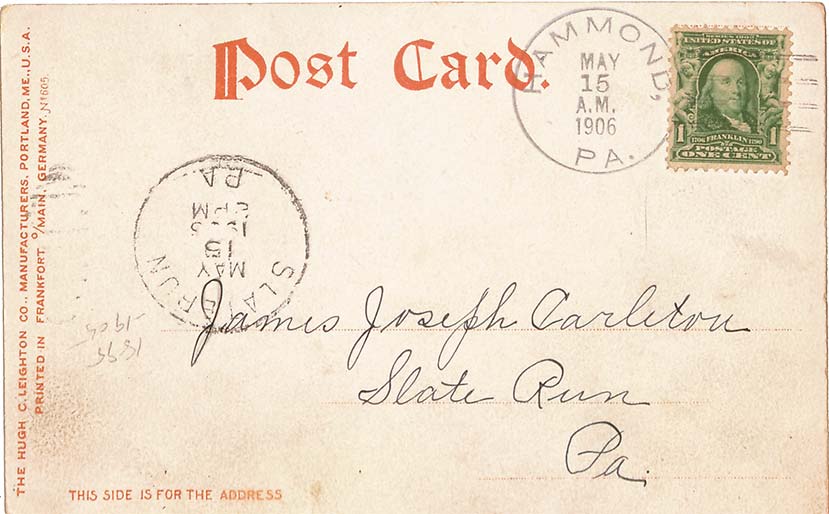 Post Card.
HAMMOND,
MAY
15
A.M.
1906
PA.
SERIES 1902
UNITED STATES OF
AMERICA
1 1706 FRANKLIN 1790 1
POSTAGE
ONE CENT
SLATE RUN
MAY
15
1906
2 PM
PA
James Joseph Carleton
Slate Run
Pa.
THIS SIDE IS FOR THE ADDRESS
THE HUGH C. LEIGHTON CO., MANUFACTURERS, PORTLAND, ME., U.S.A.
PRINTED IN FRANKFORT o/MAIN, GERMANY. N1605.